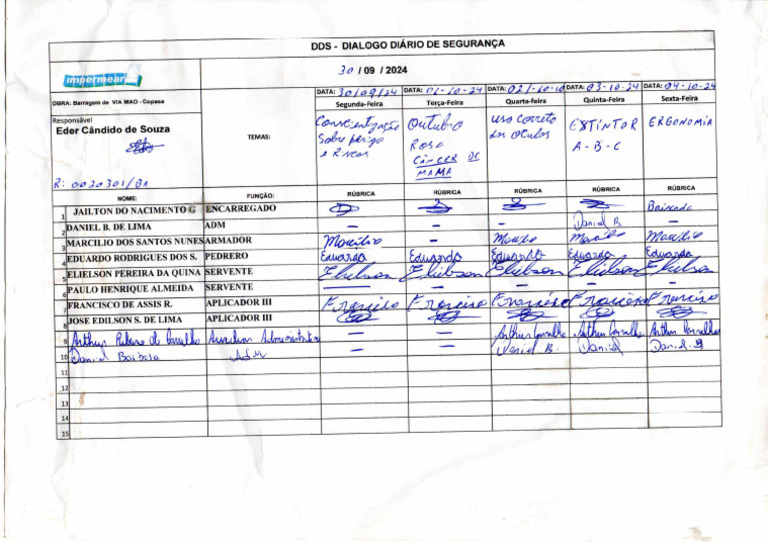 DDS - DIALOGO DIÁRIO DE SEGURANÇA
impermear
30 / 09 / 2024
OBRA: Barragem de VIA MAO - Copasa
DATA: 30/09/24 DATA: 01-10-24 DATA: 02/-10-10 DATA: 03-10-24 DATA: 04-10-24
Segunda-Feira Terça-Feira Quarta-Feira Quinta-Feira Sexta-Feira
Responsável
Eder Cândido de Souza
TEMAS:
Conscientização
Sobre perigo
e Riscos
Outubro
Rosa
CÂNCER DE
MAMA
uso correto
dos oculos
EXTINTOR
A - B - C
ERGONOMIA
R: 0030301/BA
NOME: FUNÇÃO: RÚBRICA RÚBRICA RÚBRICA RÚBRICA RÚBRICA
1 JAILTON DO NACIMENTO G ENCARREGADO Baixada
2 DANIEL B. DE LIMA ADM - - - Daniel B -
3 MARCILIO DOS SANTOS NUNES ARMADOR Marcilio - Marcilio Marcilio Marcilio
4 EDUARDO RODRIGUES DOS S. PEDRERO Eduardo Eduardo Eduardo Eduardo Eduardo
5 ELIELSON PEREIRA DA QUINA SERVENTE Elielson Elielson Elielson Elielson Elielson
6 PAULO HENRIQUE ALMEIDA SERVENTE - - - - -
7 FRANCISCO DE ASSIS R. APLICADOR III Francisco Francisco Francisco Francisco Francisco
8 JOSE EDILSON S. DE LIMA APLICADOR III
9 Arthur Ribeiro de Carvalho Auxiliar Administrativo - - Arthur Carvalho Arthur Carvalho Arthur Carvalho
10 Daniel Barbosa ADM - - Daniel B. Daniel Daniel B
11
12
13
14
15